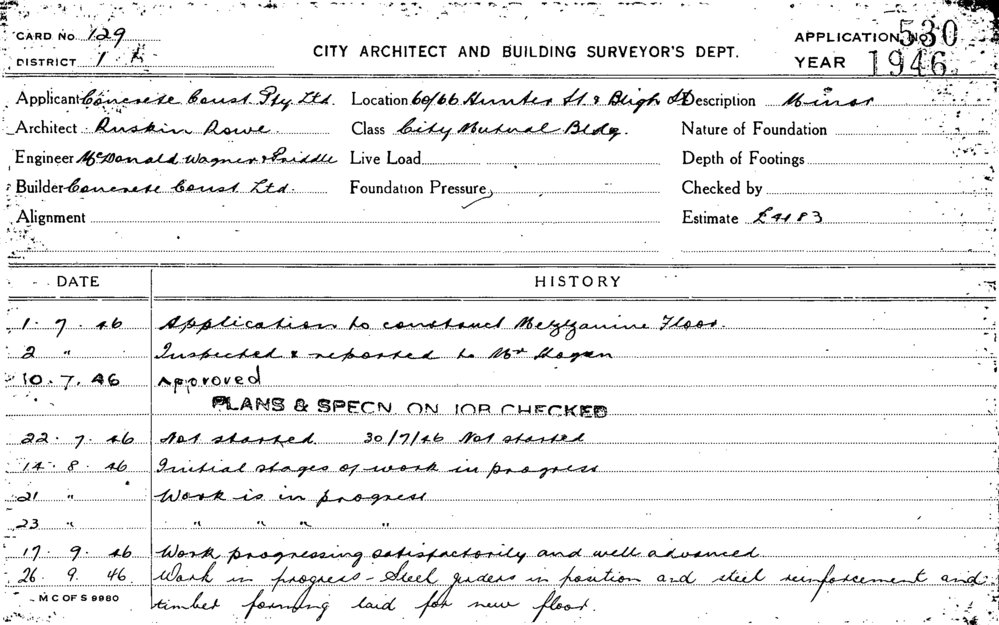 CARD No 129
DISTRICT 1
CITY ARCHITECT AND BUILDING SURVEYOR'S DEPT.
APPLICATION No 530
YEAR 1946
Applicant Concrete Const. Pty. Ltd. Location 60/66 Hunter St & Bligh St Description Minor
Architect Ruskin Rowe Class City Mutual Bldg. Nature of Foundation
Engineer McDonald Wagner & Priddle Live Load Depth of Footings
Builder Concrete Const. Ltd. Foundation Pressure Checked by
Alignment Estimate £4183
DATE HISTORY
1. 7. 46 Application to construct Mezzanine Floor.
2 " Inspected & reported to Mr Hogan
10. 7. 46 Approved
PLANS & SPECN. ON JOB CHECKED
22. 7. 46 Not started. 30/7/46 Not started
14. 8. 46 Initial stages of work in progress
21 " Work is in progress
23 " " " " "
17. 9. 46 Work progressing satisfactorily and well advanced
26. 9. 46. Work in progress - Steel girders in position and steel reinforcement and
timber forming laid for new floor.
M C OF S 9980